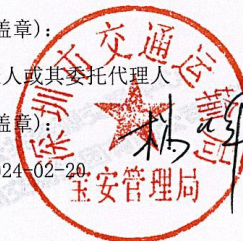 盖章):
人或其委托代理人
盖章):
024-02-20
深圳市交通运输局
宝安管理局